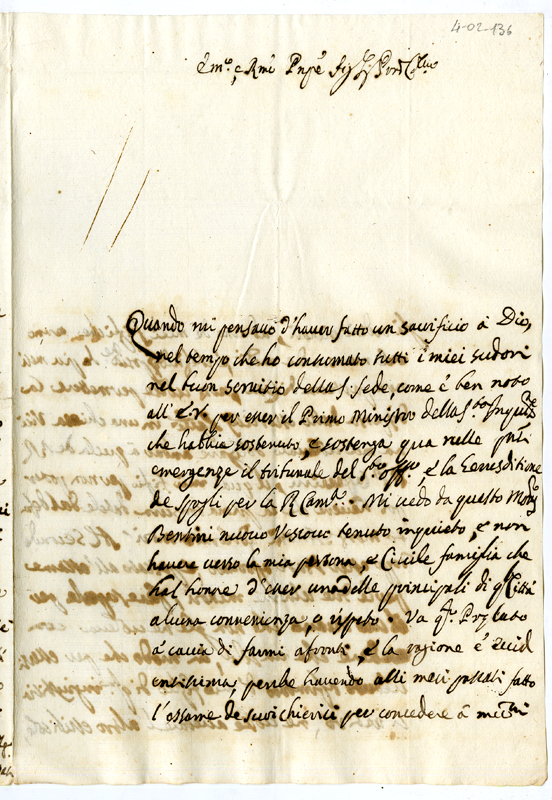 4-02-136
Emo, e Rmo Pnpe Sig Pron Colmo
Quando mi pensavo d'haver fatto un sacrificio à Dio,
nel tempo che ho consumato tutti i miei sudori
nel buon servitio della S. Sede, come è ben noto
all' E.V. per esser il Primo Ministro della Sta Inquisne
che habbia sostenuto, e sostenga qua nelle pnti
emergenze il tribunale del S.to Offo, e la
de spogli per la R Cama. Mi vedo da questo Monsr
Bentini nuovo Vescovo tenuto inquieto, e non
havere verso la mia persona, e Civile famiglia che
hal honore d'esser una delle principali di qta Città
alcuna convenienza, o rispetto. Va qto Prelato
à caccia di farmi afronti, e la ragione è
perche havendo alli mesi passati fatto
l'essame de suoi chierici per concedere à